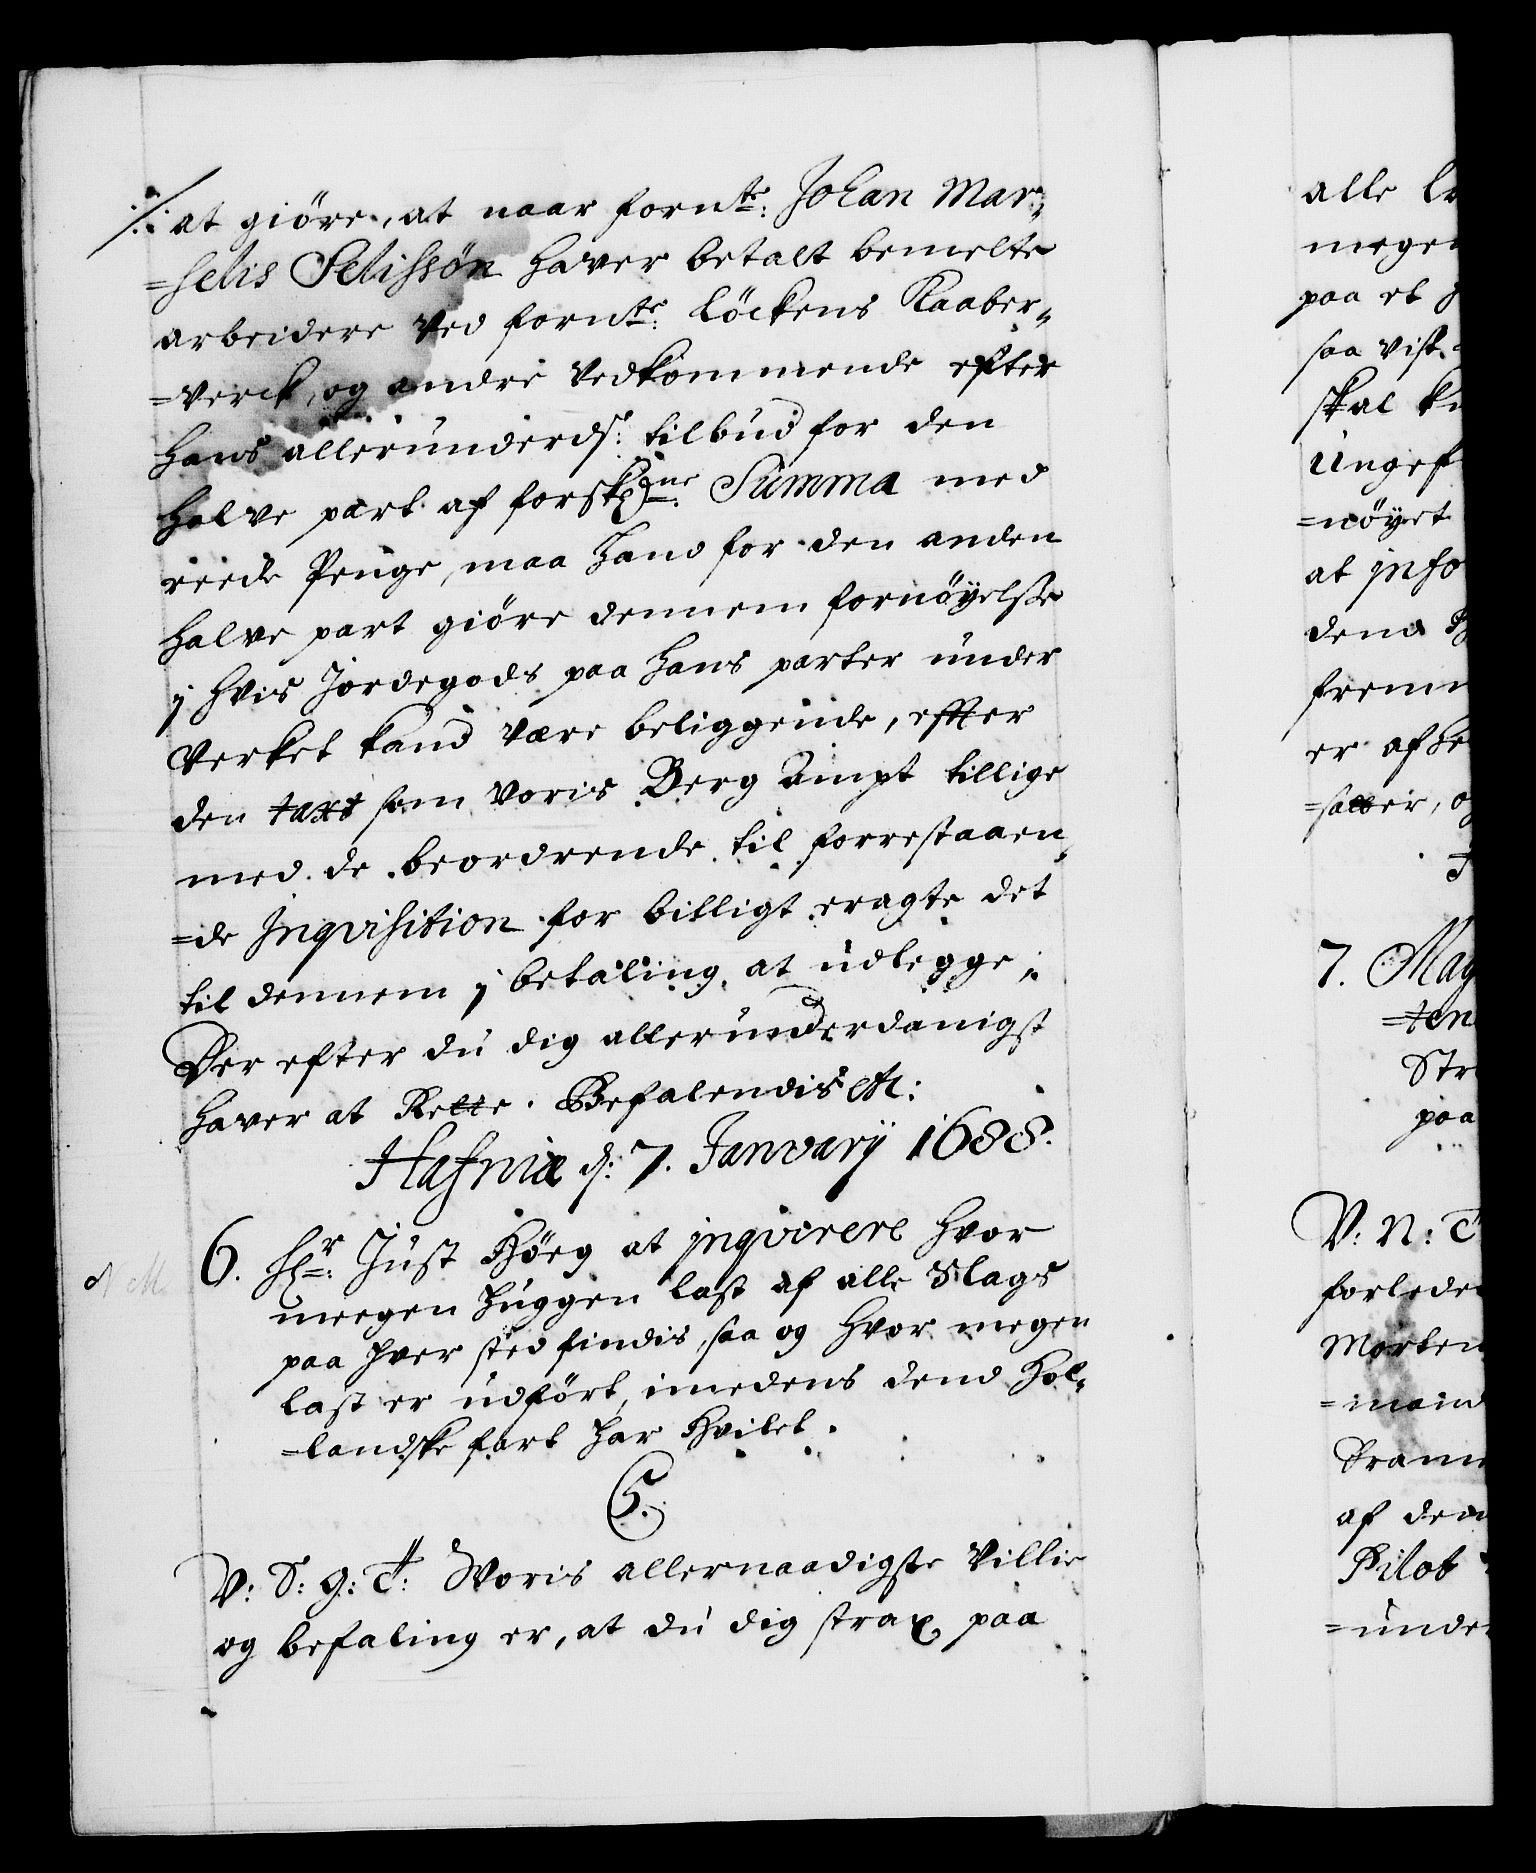 ·/· at giöre, at naar fornte: Johan Mar„
=selis Selissøn haver betalt bemelte
arbeidere ved fornte: Löckens Kaaber„
=verck, og andre vedkommende efter
hans allerunderds: tilbud for den
halve part af forskne: Summa med
reede Penge, maa hand for den anden
halve part giöre dennem fornöyelse
j hvis Jordegods paa hans parter under
Verket kand være beliggende, effter
den taxt som voris Berg Ampt tillige
med de beordrende til forrestaaen„
=de Inqvisition for billigt eragte det
til dennem j betaling at udlegge;
Der efter du dig allerunderdanigst
haver at Rette. Befalendis etc:
Hafniæ d: 7. Janvarij 1688.
6. Hr: Just Høeg at inqvirere hvor
meegen huggen last af alle Slags
paa hver sted findis, saa og hvor megen
last er udfört, imedens dend Hol„
=landske fart har Hvilet.
C5.
V: S: G: T: Woris allernaadigste Villie
og befaling er, at du dig strax paa
alle
megen
paa et
saa vist
skal
Ungef
=nöyet
at info
dend
frem
er afhe
=satter, o
7. May
=ten
Str
paa
V: N: T
forleden
Morten
=mand
Fram
af den
Pilot
=unde